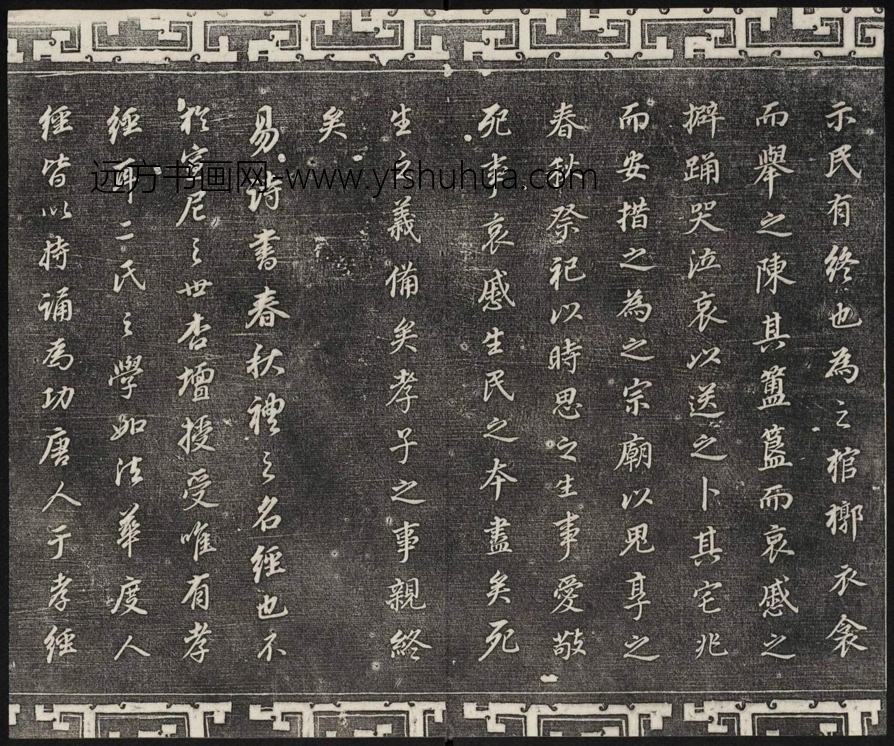 示民有終也為之棺槨衣衾
而舉之陳其簠簋而哀慼之
擗踊哭泣哀以送之卜其宅兆
而安措之為之宗廟以鬼享之
春秋祭祀以時思之生事愛敬
死事哀慼生民之本盡矣死
生之義備矣孝子之事親終
矣
易詩書春秋禮之名經也不
於宣尼之世杏壇授受唯有孝
經耳二氏之學如法華度人
經皆以持誦為功唐人于孝經
远方书画网-www.yfshuhua.com